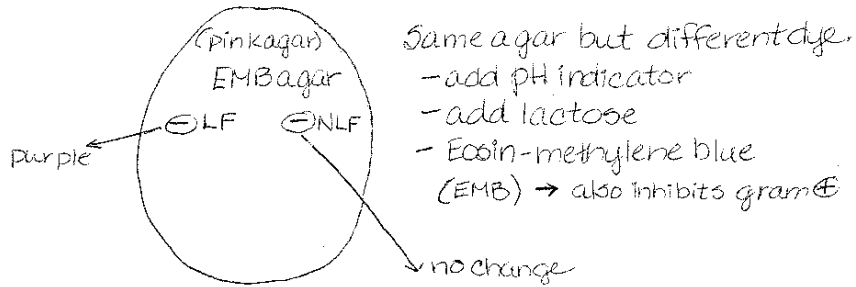 (pink agar)
EMB agar
⊖ LF
⊖ NLF
purple
no change
Same agar but different dye.
- add pH indicator
- add lactose
- Eosin-methylene blue
(EMB) → also inhibits gram ⊕